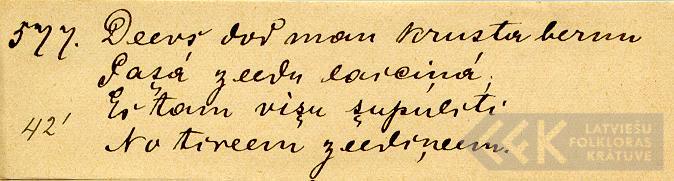 577. Deevs dod man krusta bernu
Pašá zeedu laiciņá,
Es tam višu šupulīti
42' No tireem zeediņeem.
LATVIEŠU
FOLKLORAS
KRĀTUVE